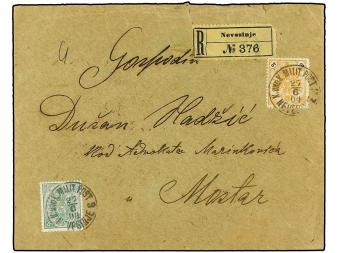 Nevesinje
R № 376
Gospodin
Dušan Hadžić
kod Advokata Marinkovića
Mostar
K. UND K. MILIT. POST 9
27
6
01
NEVESINJE
K. UND K. MILIT. POST 9
27
6
NEVESINJE